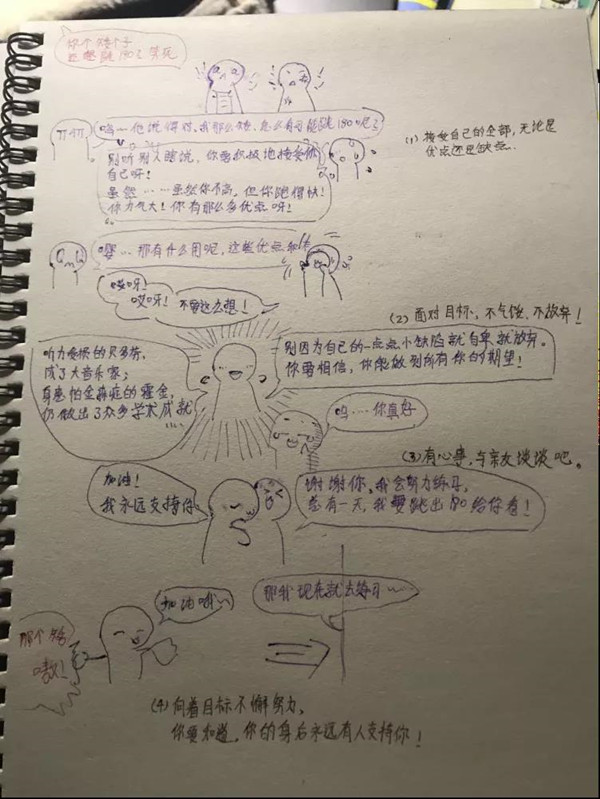 你个矮子
还想跳180？笑死
呜…他说得对，我那么矮，怎么有可能跳180呢？
(1) 接受自己的全部，无论是
优点还是缺点.
别听别人瞎说，你要积极地接受你
自己呀！
虽然……虽然你不高，但你跑得快！
你力气大！你有那么多优点呀！
嘤…那有什么用呢，这些优点和
哎呀！
哎呀！不要这么想！
(2) 面对目标，不气馁、不放弃！
听力受损的贝多芬，
成了大音乐家；
身患怕金森症的霍金，
仍做出了众多学术成就
别因为自己的一点点小缺陷就自卑就放弃。
你要相信，你能做到所有你的期望！
呜…你真好
(3) 有心事，与亲友谈谈吧。
加油！
我永远支持你
谢谢你，我会努力练习，
总有一天，我要跳出180给你看！
加油哦~
那我现在就去练习~
那个矮
嗷！
(4) 向着目标不懈努力，
你要知道，你的身后永远有人支持你！